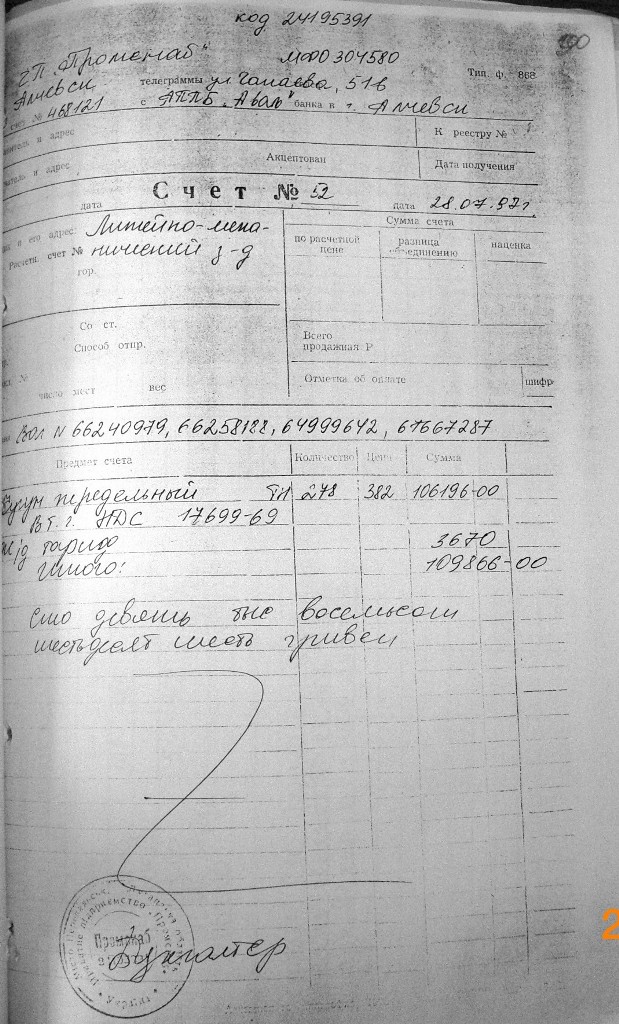 код 24195391
190
ЧП "Промснаб"
МФО 304580
Тип. ф. 868
Алчевск
телеграммы ул Чапаева, 51в
счет № 468121 с АППБ "Аваль" банка в г. Алчевск
и адрес
К реестру №
и адрес
Акцептован
Дата получения
дата Счет № 52 дата 28.07.97г
и его адрес: Литейно-меха-
Сумма счета
Расчетн. счет № нический з-д
по расчетной цене
разница
наценка
гор.
Со ст.
Способ отпр.
Всего
продажная Р
число мест вес
Отметка об оплате
шифр
Ваг N 66240979, 66258188, 64999642, 61667287
Предмет счета Количество Цена Сумма
Чугун передельный тн 278 382 106196-00
в т.ч. НДС 17699-69
ж/д тариф 3670
Итого: 109866-00
Сто девять тыс восемьсот
шестьдесят шесть гривен
Промснаб
Україна
Бухгалтер
2